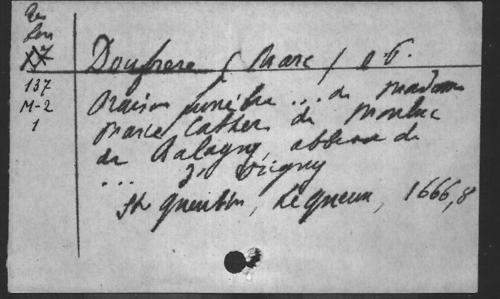 Res
XX
137
M-2
1
Doufrere (Marc) O.P.
Oraison funèbre ... de Madame
Marie Cather. de Monluc
de Balagny, abbesse de
... d'Origny
St Quentin, Le Queux, 1666, 8